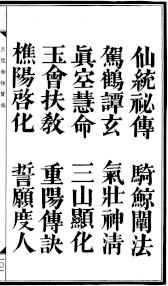 仙統祕傳　騎鯨闡法
駕鶴譚玄　氣壯神清
眞空慧命　三山顯化
玉會扶敎　重陽傳訣
樵陽啓化　誓願度人